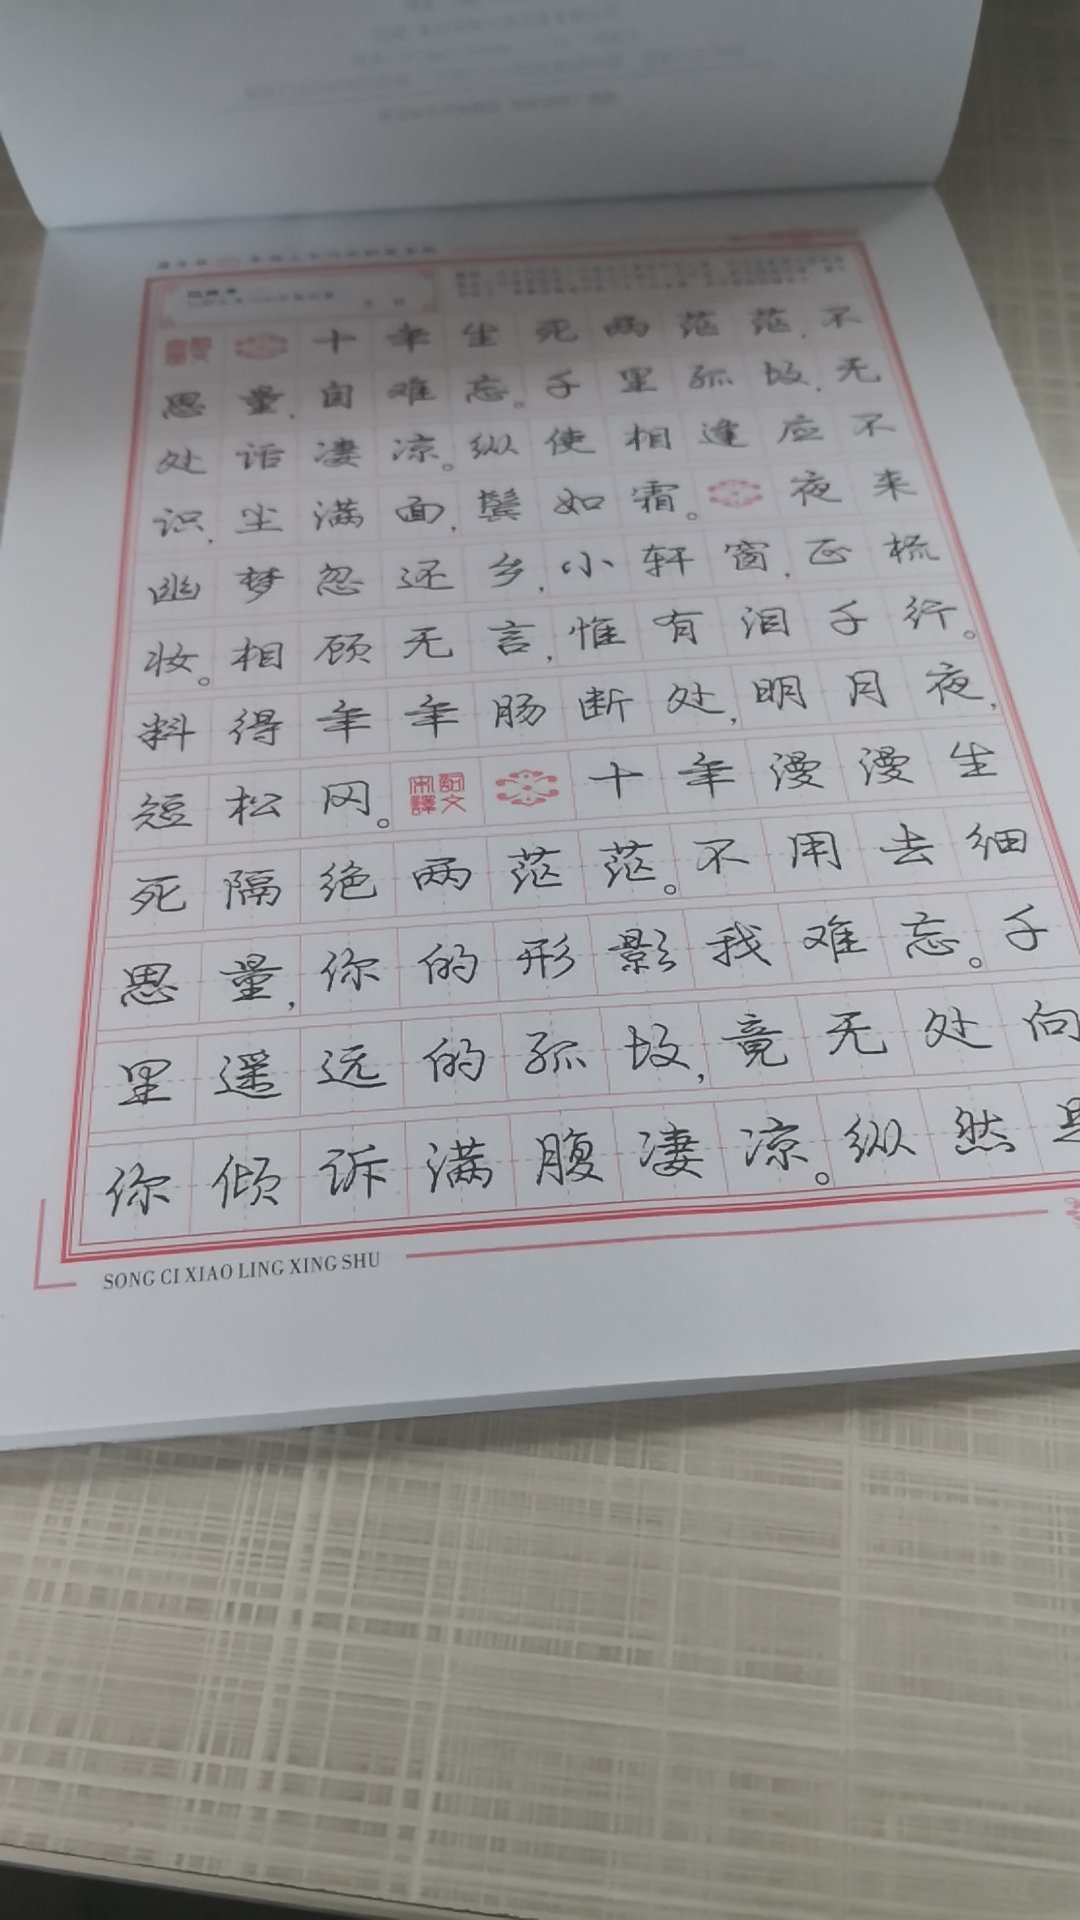 十年生死两茫茫，不
思量，自难忘。千里孤坟，无
处话凄凉。纵使相逢应不
识，尘满面，鬓如霜。夜来
幽梦忽还乡，小轩窗，正梳
妆。相顾无言，惟有泪千行。
料得年年肠断处，明月夜，
短松冈。宋詞譯文十年漫漫生
死隔绝两茫茫。不用去细
思量，你的形影我难忘。千
里遥远的孤坟，竟无处向
你倾诉满腹凄凉。纵然
SONG CI XIAO LING XING SHU